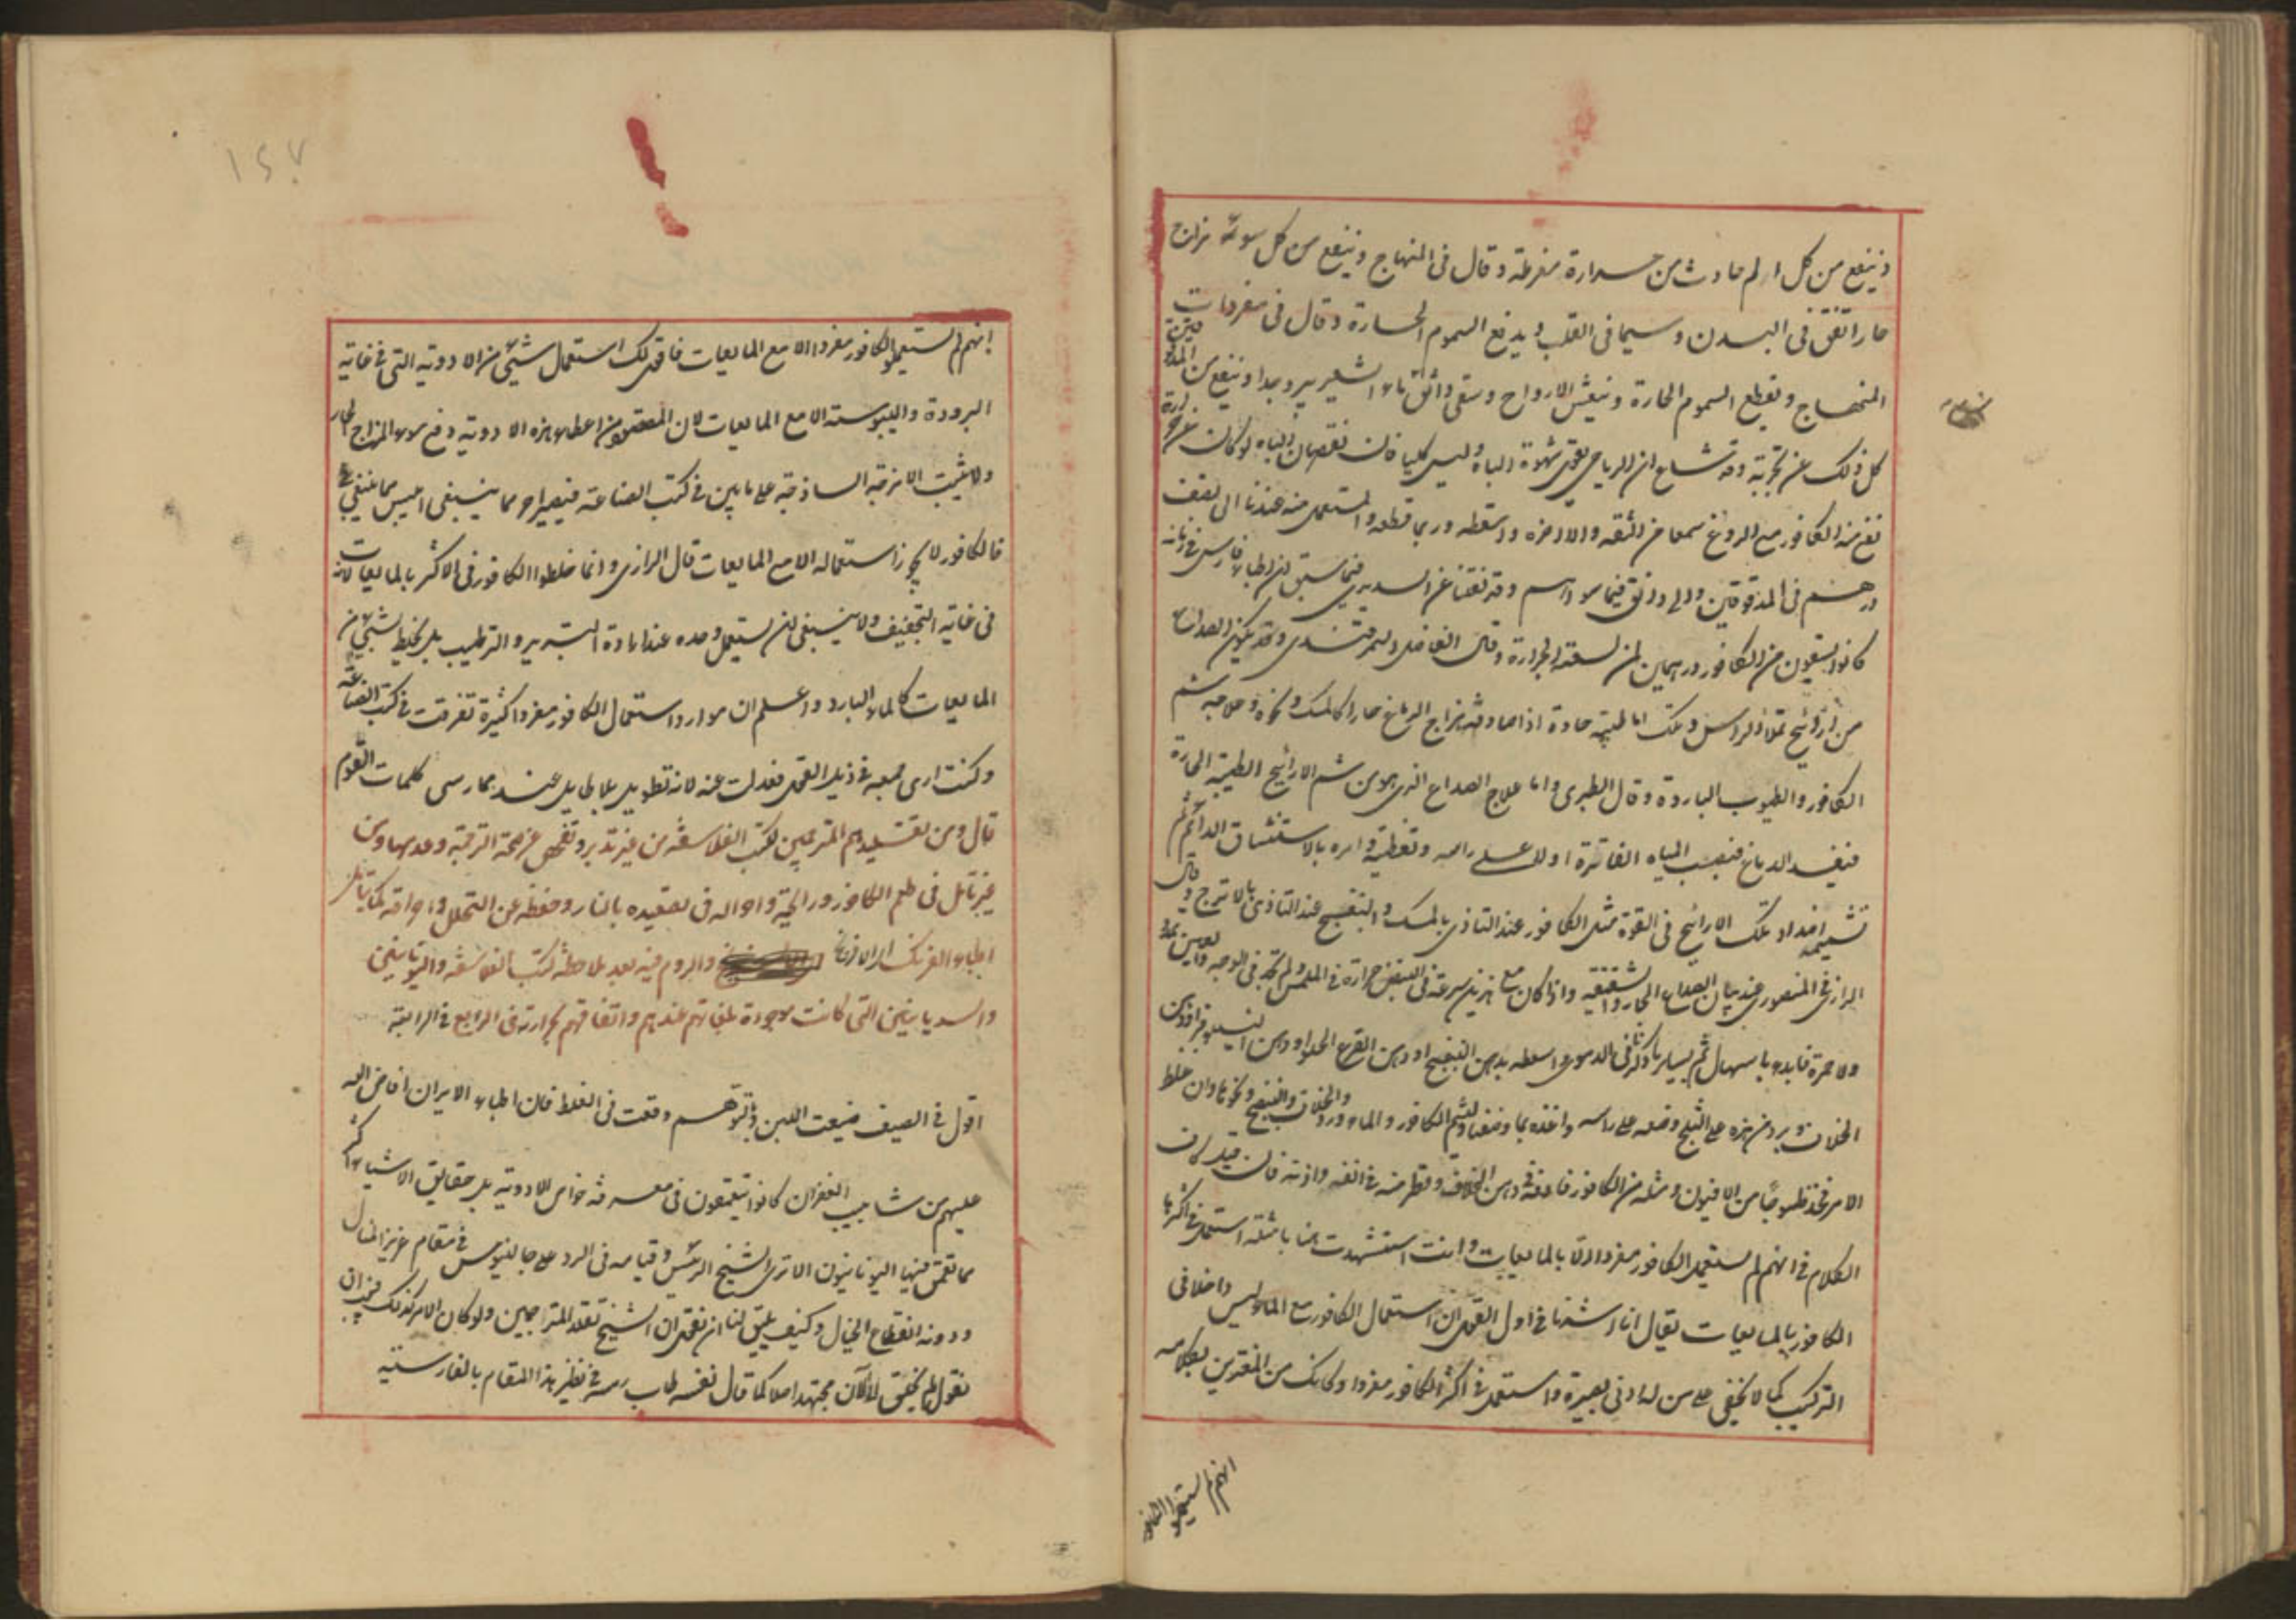 وينفع من كل الم حادث من حرارة مفرطة وقال في المنهاج وينفع من كل سوء مزاج
حار اتفق في البدن وسيما في القلب ويدفع السموم الحارة وقال في مفردات
المنهاج ويقطع السموم الحارة وينعش الارواح وسقي دانق بماء الشعير يبرد جدا وينفع من
كل ذلك عن تجربة وقد شاع ان الرياحي يقوي شهوة الباه وليس كليا فان نقصان الباه لو كان عن حرارة
نفع منه الكافور مع الروغ سمعا من الثقة والا اضره واسقطه وربما قطعه والمستعمل منه عندنا الى نصف
درهم في المدقوقين والى دانق فيما سواهم وقد نقلنا عن السديدي فيما سبق ان اطباء فارس في زمانه
كانوا يسقون من الكافور درهمين لمن لسعته الجرارة وقال الفاضل السمرقندي وقد يكون الصداع
من ارائيح تملأ الراس وتلك اما طيبة حادة اذا صادفت مزاج الدماغ حارا كالمسك ونحوه وعلاجه شم
الكافور والطيوب الباردة وقال الطبري واما علاج الصداع الذي يكون من شم الارائيح الطيبة الحارة
فيفسد الدماغ فيصب المياه الفاترة اولا على راسه وتغطيته وامره بالاستنشاق الدائم ثم
تشميمه اضداد تلك الارائيح في القوة مثل الكافور عند التاذي بالمسك والبنفسج عند التاذي بالاترج وقال
الرازي في المنصوري عند بيان الصداع الحار والشقيقة واذا كان مع سرعة في النبض حرارة في الملمس ولم تجد في الوجه والعين
ولا حمرة فابدء باسهال ثم اسعطه بدهن البنفسج او دهن القرع الحلو او دهن النيلوفر او دهن
الخلاف وبرد هذه على الثلج وضعه على راسه واغذه بما وصفنا وليشم الكافور والماورد والخلاف والبنفسج ونحوها وان غلظ
الامر فخذ طسوجا من الافيون ومثله من الكافور فادفه في دهن الخلاف وقطر منه في انفه واذنه فان قيل كان
الكلام في انهم لم يستعمل الكافور مفردا الا بالمايعات وانت استشهدت هنا بامثلة استعمل في اكثرها
الكافور بالمايعات يقال انا اشرنا في اول القول ان استعمال الكافور مع الماء ليس داخلا في
التركيب كما لا يخفى على من له ادنى بصيرة واستعمل في اكثر الكافور مفردا وكانك من المغترين بكلامه
انهم لم يستعملوا الكافور
١٤٧
انهم لم يستعملوا الكافور مفردا الا مع المايعات فاقول لك استعمال شيئ من الادوية التي في غاية
البرودة واليبوسة الا مع المايعات لان المقصود من اعطاء هذه الادوية دفع سوء المزاج الحار
ولا يثبت الامزجة الساذجة على ما بين في كتب الصناعة فيصير اجود مما ينبغي ايبس مما ينبغي في
فالكافور لا يجوز استعماله الا مع المايعات قال الرازي وانما خلطوا الكافور في الاكثر بالمايعات لانه
في غاية التجفيف ولا ينبغي ان يستعمل وحده عند ارادة التبريد والترطيب بل يخلط بشيئ من
المايعات كالماء البارد واعلم ان موارد استعمال الكافور مفردا كثيرة تفرقت في كتب الصناعة
وكنت ارى جمعه في ذيل القول فعدلت عنه لانه تطويل بلا طايل عند ممارسي كلمات القوم
قال ومن تقليدهم المترجمين لكتب الفلاسفة من غير تدبر وتفحص عن صحة الترجمة وعدمها ومن
غير تامل في طعم الكافور ورايحته واحواله في تصعيده بالنار وحفظه عن التحلل واحراقه كما يتامل
اطباء الفرنك والروم فيه بعد ملاحظة كتب الفلاسفة واليونانيين
والسريانيين التي كانت موجودة بلغاتهم عندهم واتفاقهم بحرارته في الرابع في الرابعة
اقول في الصيف ضيعت اللبن وبالتوهم وقعت في الغلط فان اطباء الايران افاض الله
عليهم من شابيب الغفران كانوا يتعمقون في معرفة خواص الادوية بل حقايق الاشياء اكثر
مما تعمق فيها اليونانيون الا ترى الشيخ الرئيس وقيامه في الرد على جالينوس في مقام عزيز المنال
ودونه انقطاع الخيال وكيف يليق لنا ان نقول ان الشيخ تقلد المترجمين ولو كان الامر كذلك فيجب ان
نقول لم يتحقق الى الآن مجتهد اصلا كما قال نفسه طاب رمسه في نظير هذا المقام بالفارسية